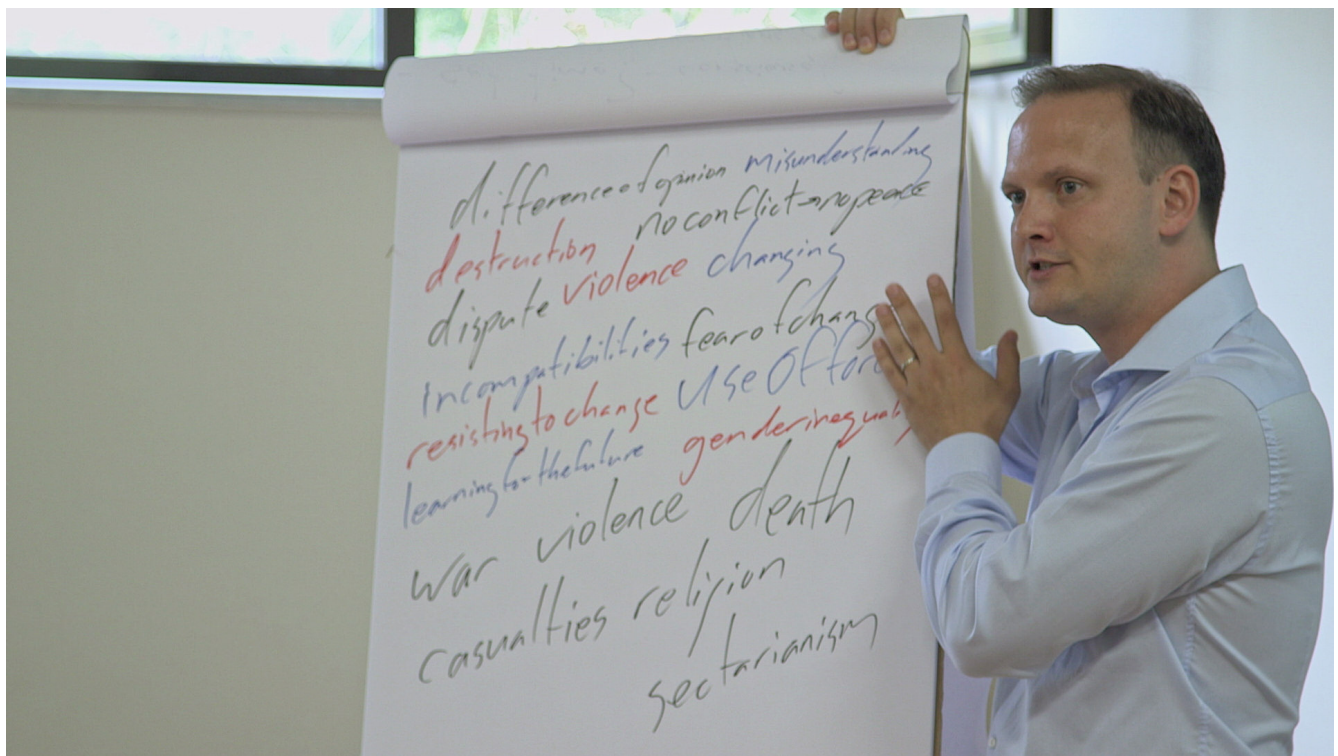 difference of opinion misunderstanding
destruction no conflict→no peace
dispute violence changing
incompatibilities fear of chang
resisting to change use of forc
learning for the future gender inequal
war violence death
casualties religion
sectarianism